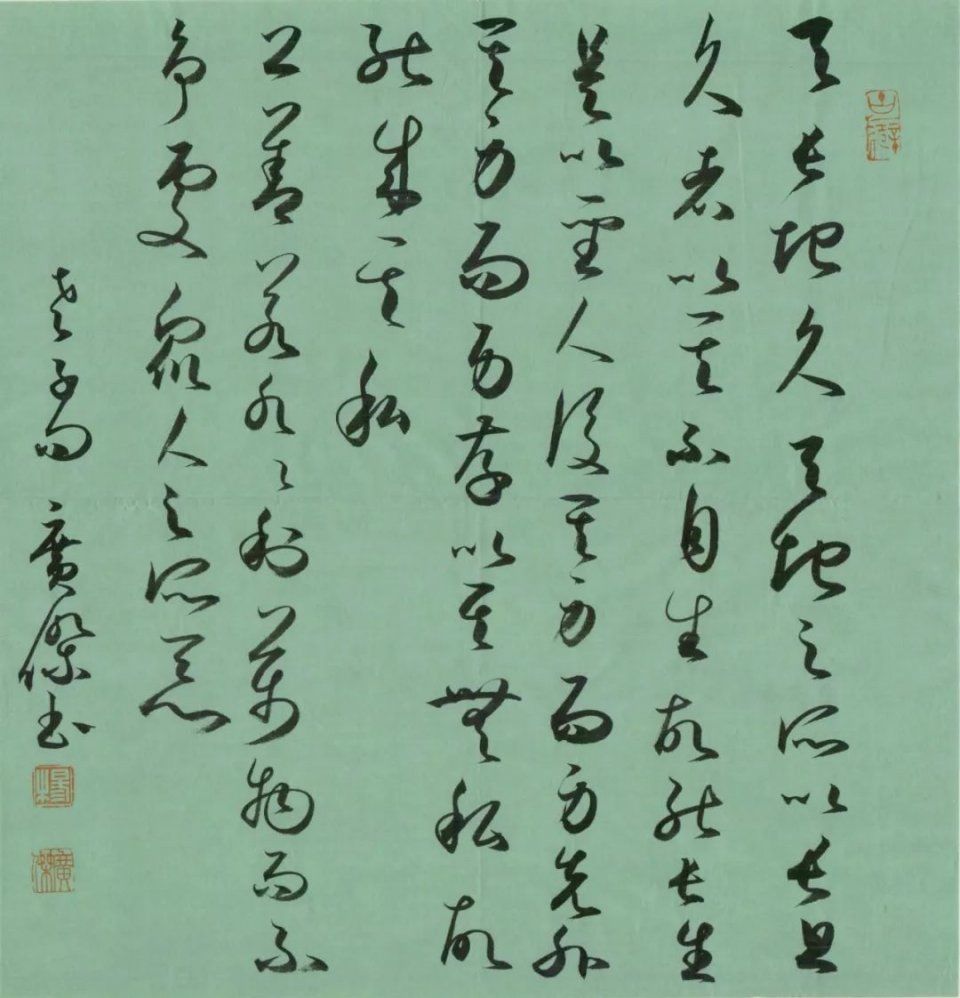 天長地久天地之所以長且
久者以其不自生故能長生
是以聖人後其身而身先外
其身而身存以其無私故
能成其私
上善若水〻利萬物而不
爭處眾人之所惡
老子句 廣傑書
廣傑